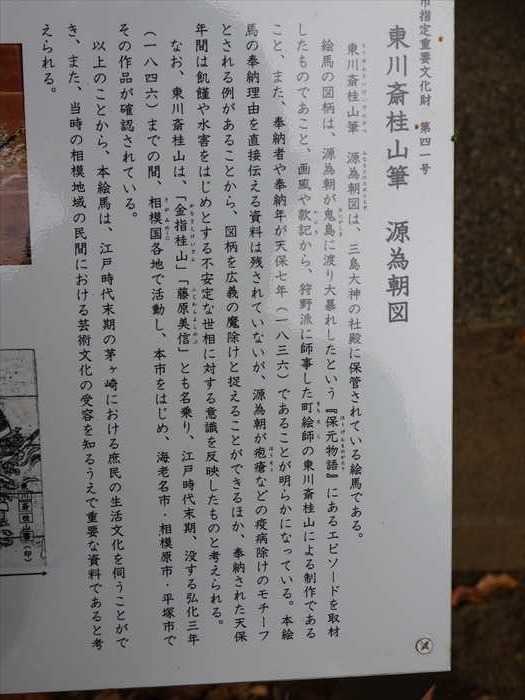 市指定重要文化財　第四一号
東川斎桂山筆　源為朝図
東川斎桂山筆　源為朝図は、三島大神の社殿に保管されている絵馬である。
絵馬の図柄は、源為朝が鬼島に渡り大暴れしたという『保元物語』にあるエピソードを取材
したものであこと、画風や款記から、狩野派に師事した町絵師の東川斎桂山による制作である
こと、また、奉納者や奉納年が天保七年（一八三六）であることが明らかになっている。本絵
馬の奉納理由を直接伝える資料は残されていないが、源為朝が疱瘡などの疫病除けのモチーフ
とされる例があることから、図柄を広義の魔除けと捉えることができるほか、奉納された天保
年間は飢饉や水害をはじめとする不安定な世相に対する意識を反映したものと考えられる。
なお、東川斎桂山は、「金指桂山」「藤原美信」とも名乗り、江戸時代末期、没する弘化三年
（一八四六）までの間、相模国各地で活動し、本市をはじめ、海老名市・相模原市・平塚市で
その作品が確認されている。
以上のことから、本絵馬は、江戸時代末期の茅ヶ崎における庶民の生活文化を伺うことがで
き、また、当時の相模地域の民間における芸術文化の受容を知るうえで重要な資料であると考
えられる。